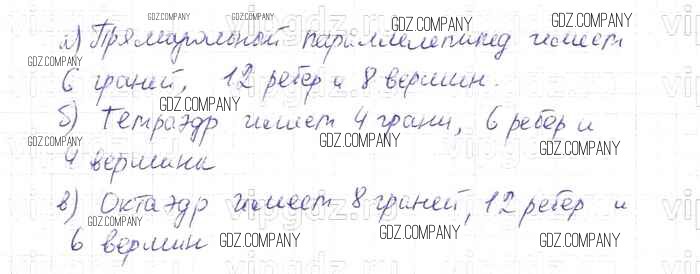 а) Прямоугольный параллелепипед имеет
6 граней, 12 ребер и 8 вершин.
б) Тетраэдр имеет 4 грани, 6 ребер и
4 вершина
в) Октаэдр имеет 8 граней, 12 ребер и
6 вершин
GDZ.COMPANY
GDZ.COMPANY
GDZ.COMPANY
GDZ.COMPANY
GDZ.COMPANY
GDZ.COMPANY
GDZ.COMPANY
GDZ.COMPANY
GDZ.COMPANY
GDZ.COMPANY
GDZ.COMPANY
GDZ.COMPANY
GDZ.COMPANY